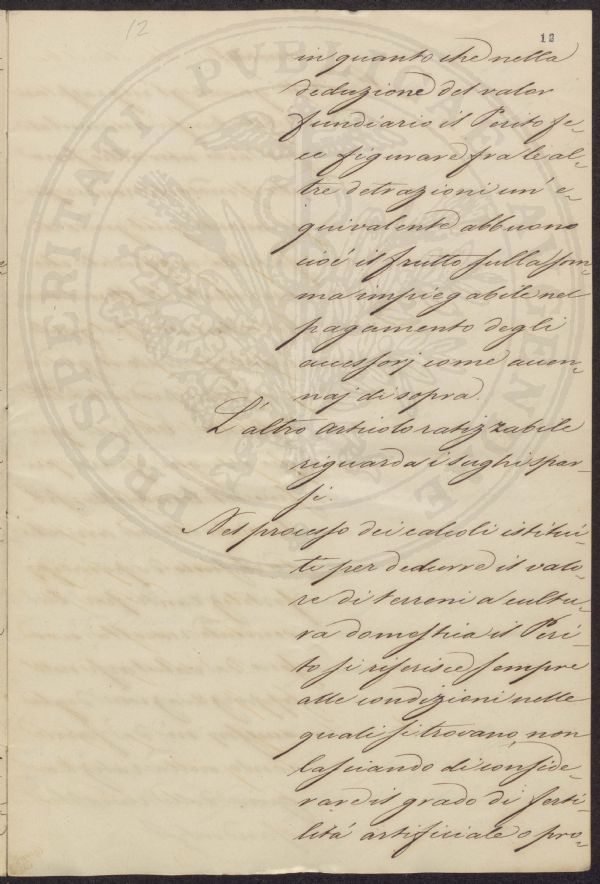 12
12
PROSPERITATI PVBLICAE AVGENDAE
in quanto che nella
deduzione del valor
fundiario il Perito fe-
ce figurare fra le al-
tre detrazioni un' e-
quivalente abbuono
cioé il frutto sulla som-
ma impiegabile nel
pagamento degli
accessorj come accen-
naj di sopra.
L'altro articolo ratizzabile
riguarda i sughi spar-
si.
Nel processo dei calcoli istitui-
ti per dedurre il valo-
re di terreni a cultu-
ra domestica il Peri-
to si riferisce sempre
alle condizioni nelle
quali si trovano, non
lasciando di conside-
rare il grado di ferti-
litá artificiale o pro-